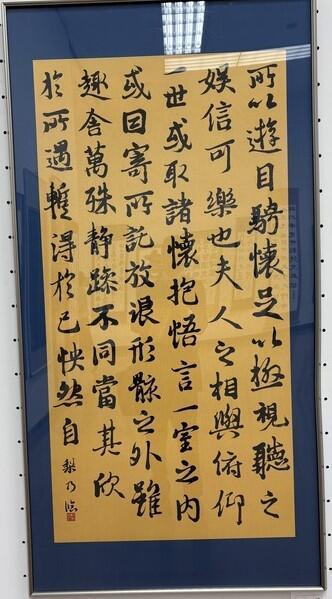 所以遊目騁懷足以極視聽之
娯信可樂也夫人之相與俯仰
一世或取諸懷抱悟言一室之内
或因寄所託放浪形骸之外雖
趣舎萬殊静躁不同當其欣
於所遇暫得於己怏然自
梨乃臨